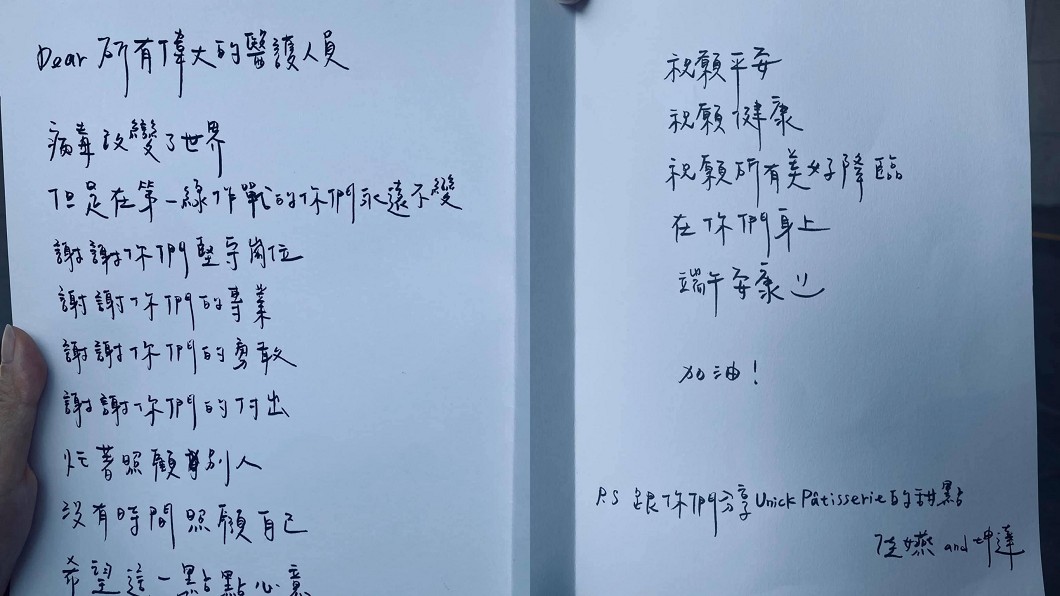 Dear 所有偉大的醫護人員
病毒改變了世界
但是在第一線作戰的你們永遠不變
謝謝你們堅守崗位
謝謝你們的專業
謝謝你們的勇敢
謝謝你們的付出
忙著照顧別人
沒有時間照顧自己
希望這一點點心意
祝願平安
祝願健康
祝願所有美好降臨
在你們身上
端午安康 :)
加油！
P.S 跟你們分享 Unick Pâtisserie 的甜點
陸嬿 and 坤達